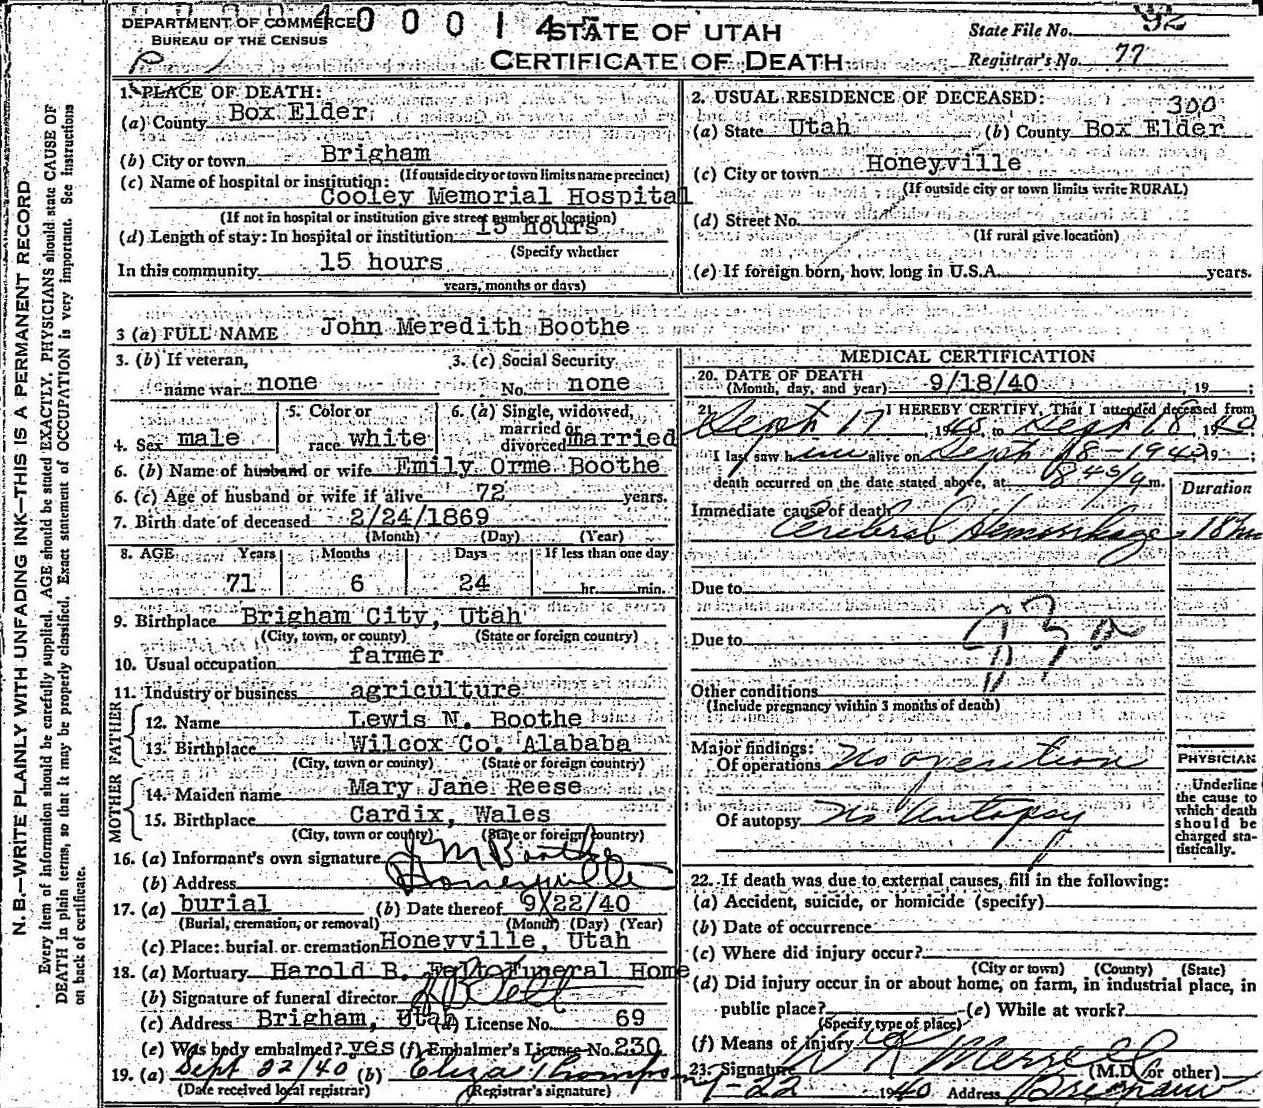 DEPARTMENT OF COMMERCE
BUREAU OF THE CENSUS
STATE OF UTAH
CERTIFICATE OF DEATH
State File No. 92
Registrar's No. 77
N. B.—WRITE PLAINLY WITH UNFADING INK—THIS IS A PERMANENT RECORD
Every item of information should be carefully supplied. AGE should be stated EXACTLY. PHYSICIANS should state CAUSE OF
DEATH in plain terms, so that it may be properly classified. Exact statement of OCCUPATION is very important. See instructions
on back of certificate.
1. PLACE OF DEATH:
(a) County Box Elder
(b) City or town Brigham
(If outside city or town limits name precinct)
(c) Name of hospital or institution:
Cooley Memorial Hospital
(If not in hospital or institution give street number or location)
(d) Length of stay: In hospital or institution 15 hours
(Specify whether
In this community 15 hours
years, months or days)
2. USUAL RESIDENCE OF DECEASED:
300
(a) State Utah (b) County Box Elder
(c) City or town Honeyville
(If outside city or town limits write RURAL)
(d) Street No.
(If rural give location)
(e) If foreign born, how long in U.S.A. years.
3 (a) FULL NAME John Meredith Boothe
3. (b) If veteran,
name war none
3. (c) Social Security
No. none
4. Sex male
5. Color or
race white
6. (a) Single, widowed,
married or
divorced married
6. (b) Name of husband or wife Emily Orme Boothe
6. (c) Age of husband or wife if alive 72 years.
7. Birth date of deceased 2/24/1869
(Month) (Day) (Year)
8. AGE Years Months Days If less than one day
71 6 24 hr. min.
9. Birthplace Brigham City, Utah
(City, town, or county) (State or foreign country)
10. Usual occupation farmer
11. Industry or business agriculture
FATHER
12. Name Lewis N. Boothe
13. Birthplace Wilcox Co. Alababa
(City, town or county) (State or foreign country)
MOTHER
14. Maiden name Mary Jane Reese
15. Birthplace Cardix, Wales
(City, town or county) (State or foreign country)
16. (a) Informant's own signature J M Boothe
(b) Address Honeyville
17. (a) burial (b) Date thereof 9/22/40
(Burial, cremation, or removal) (Month) (Day) (Year)
(c) Place: burial or cremation Honeyville, Utah
18. (a) Mortuary Harold B. Felt Funeral Home
(b) Signature of funeral director
(c) Address Brigham, Utah (d) License No. 69
(e) Was body embalmed? yes (f) Embalmer's License No. 230
19. (a) Sept 22/40 (b) Eliza Thompson
(Date received local registrar) (Registrar's signature)
MEDICAL CERTIFICATION
20. DATE OF DEATH
(Month, day, and year) 9/18/40, 19 ;
21. I HEREBY CERTIFY, That I attended deceased from
Sept 17, 1940, to Sept 18, 1940
I last saw him alive on Sept 18-1940, 19 ;
death occurred on the date stated above, at 8 45/am.
Duration
Immediate cause of death
Cerebral Hemorrhage 18 hrs
Due to
Due to
83a
Other conditions
(Include pregnancy within 3 months of death)
Major findings:
Of operations No operation
Of autopsy No Autopsy
PHYSICIAN
Underline
the cause to
which death
should be
charged sta-
tistically.
22. If death was due to external causes, fill in the following:
(a) Accident, suicide, or homicide (specify)
(b) Date of occurrence
(c) Where did injury occur?
(City or town) (County) (State)
(d) Did injury occur in or about home, on farm, in industrial place, in
public place? (e) While at work?
(Specify type of place)
(f) Means of injury
23. Signature Merrell (M.D. or other)
9-22 1940 Address Brigham